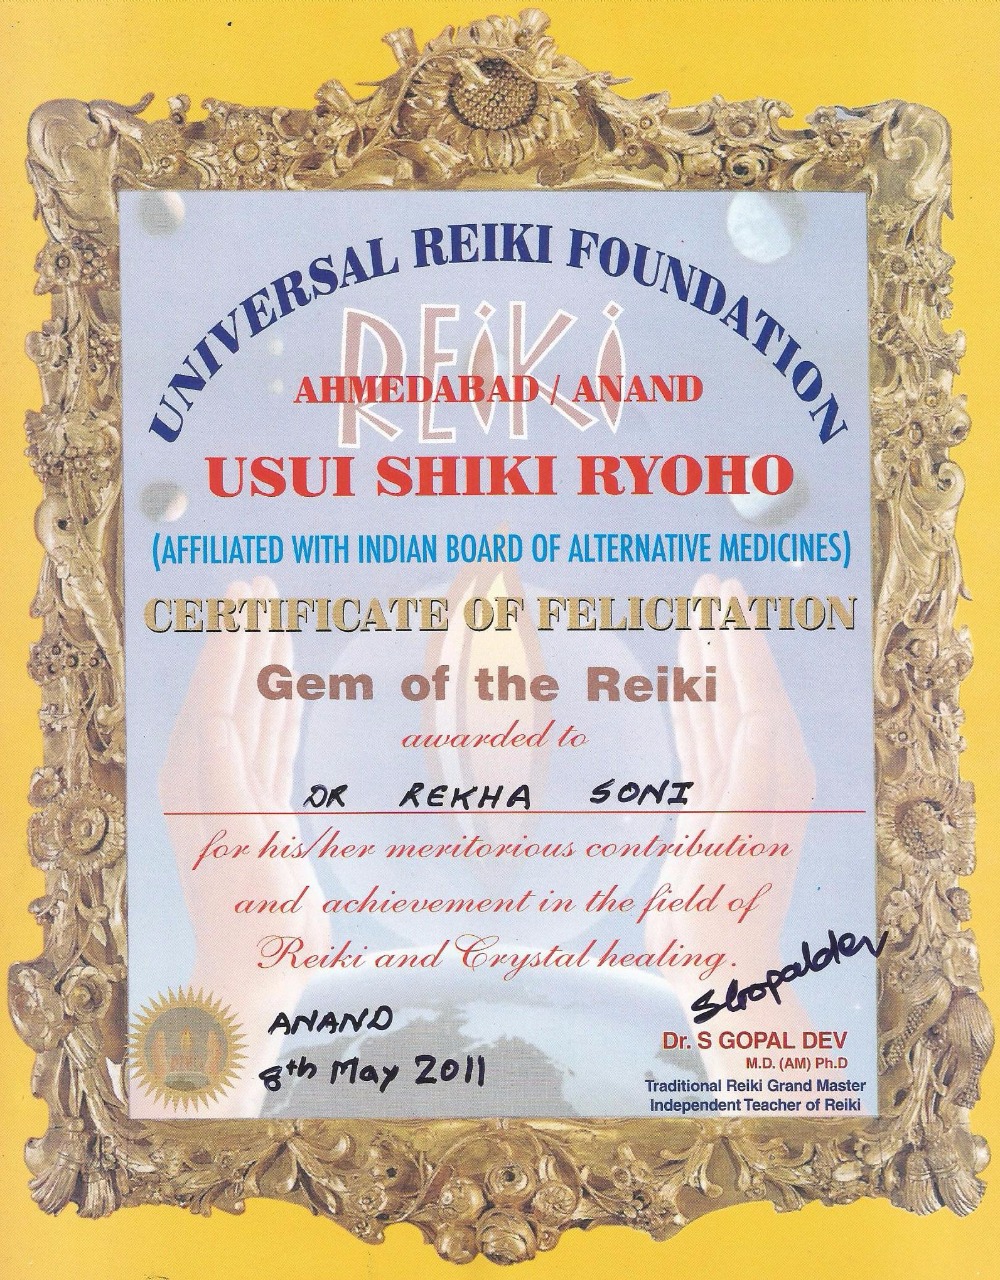 UNIVERSAL REIKI FOUNDATION
REiKi
AHMEDABAD / ANAND
USUI SHIKI RYOHO
(AFFILIATED WITH INDIAN BOARD OF ALTERNATIVE MEDICINES)
CERTIFICATE OF FELICITATION
Gem of the Reiki
awarded to
DR REKHA SONI
for his/her meritorious contribution
and achievement in the field of
Reiki and Crystal healing.
SGopaldev
ANAND
8th May 2011
Dr. S GOPAL DEV
M.D. (AM) Ph.D
Traditional Reiki Grand Master
Independent Teacher of Reiki